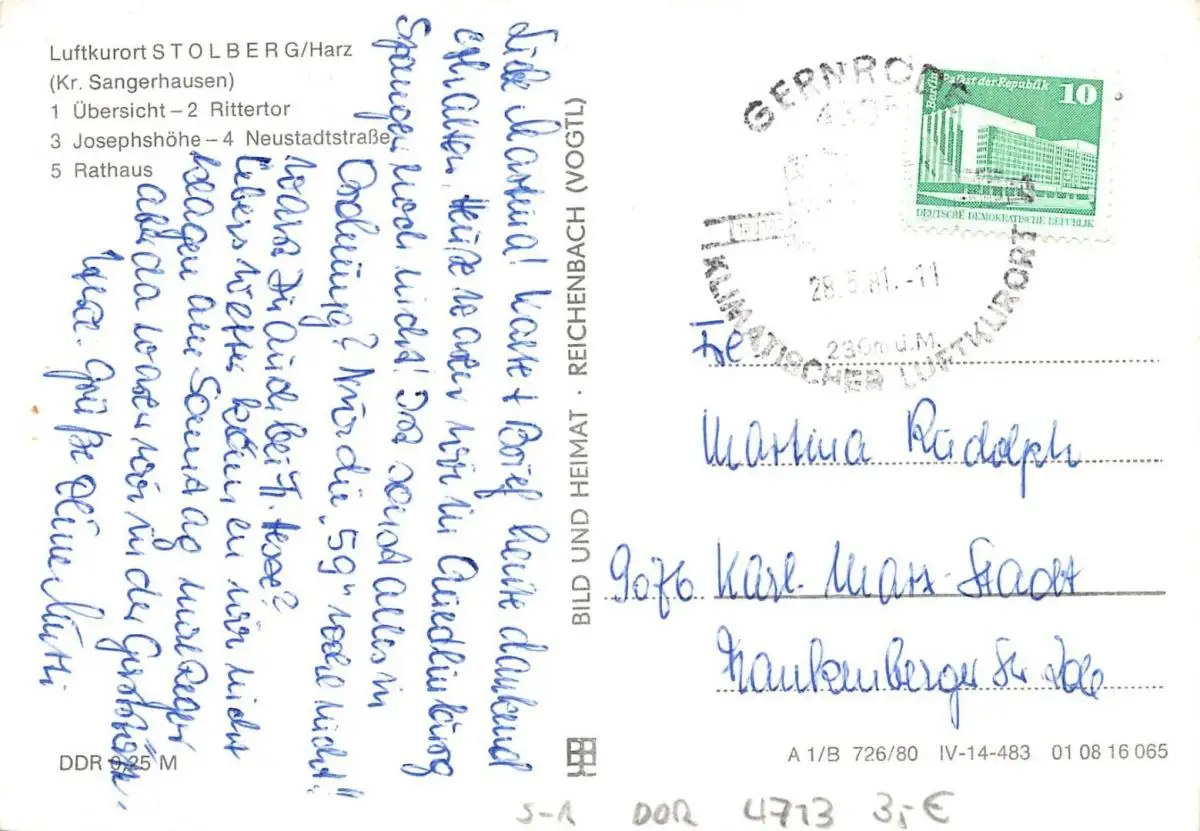 Luftkurort STOLBERG/Harz
(Kr. Sangerhausen)
1 Übersicht – 2 Rittertor
3 Josephshöhe – 4 Neustadtstraße
5 Rathaus
Liebe Martina! Karte + Brief heute dankend
erhalten. Heute waren wir in Quedlinburg
Spangen noch nicht! Ist sonst alles in
Ordnung? Nur die „59" rode nicht!
Warst Du auch bei Fr. Hexe?
Übers Wetter können wir nicht
klagen am Samstag mal Regen
aber da waren wir in der
Herzl. Grüße Deine Mutti
DDR 0,25 M
BILD UND HEIMAT · REICHENBACH (VOGTL)
GERNRODE
KLIMATISCHER LUFTKURORT
28.5.81.-11
230m ü.M.
Berlin Palast der Republik
10
DEUTSCHE DEMOKRATISCHE REPUBLIK
Frl
Martina Rudolph
9076 Karl-Marx-Stadt
Frankenberger Str
A 1/B 726/80 IV-14-483 01 08 16 065
S-1 DDR 4713 3,- €